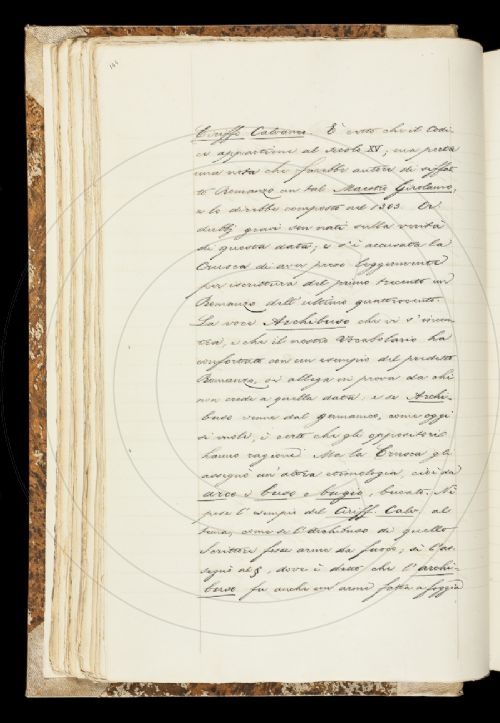 Ciriffo Calvaneo. È certo che il Codi-
ce appartiene al secolo XV; ma porta
una nota che farebbe autore di siffat-
to Romanzo un tal Maestro Girolamo,
e lo direbbe composto nel 1303. Or
dubbj gravi son nati sulla verità
di questa data; e s'è accusata la
Crusca di aver preso leggermente
per iscrittura del primo trecento un
Romanzo dell'ultimo quattrocento.
La voce Archibuso che vi s'incon-
tra, e che il nostro Vocabolario ha
confortato con un esempio del predetto
Romanzo, si allega in prova da chi
non crede a quella data; e se Archi-
buso venne dal germanico, come oggi
si vuole, è certo che gli oppositori
hanno ragione. Ma la Crusca gli
assegnò un'altra etimologia, cioè da
arco e buso o bugio, bucato. Nè
pose l'esempio del Ciriff. Calv. al
tema, come se l'Archibuso di quello
Scrittore fosse arme da fuoco; sì l'as-
segnò al §, dove è detto che l'archi-
buso fu anche un'arme fatta a foggia